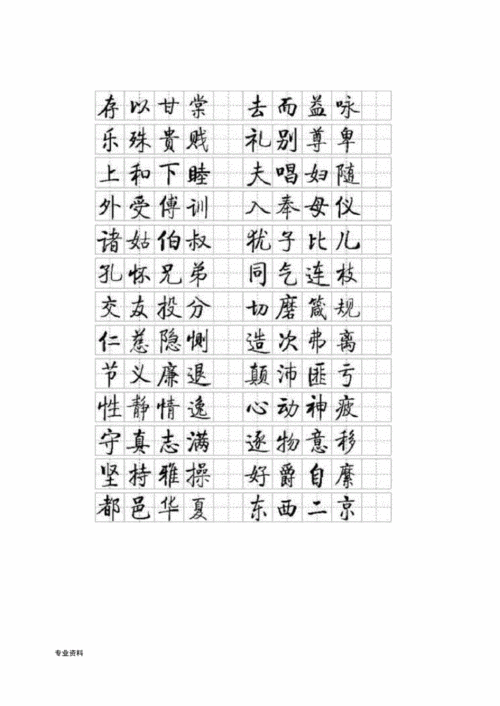 存以甘棠 去而益咏
乐殊贵贱 礼别尊卑
上和下睦 夫唱妇随
外受傅训 入奉母仪
诸姑伯叔 犹子比儿
孔怀兄弟 同气连枝
交友投分 切磨箴规
仁慈隐恻 造次弗离
节义廉退 颠沛匪亏
性静情逸 心动神疲
守真志满 逐物意移
坚持雅操 好爵自縻
都邑华夏 东西二京
专业资料